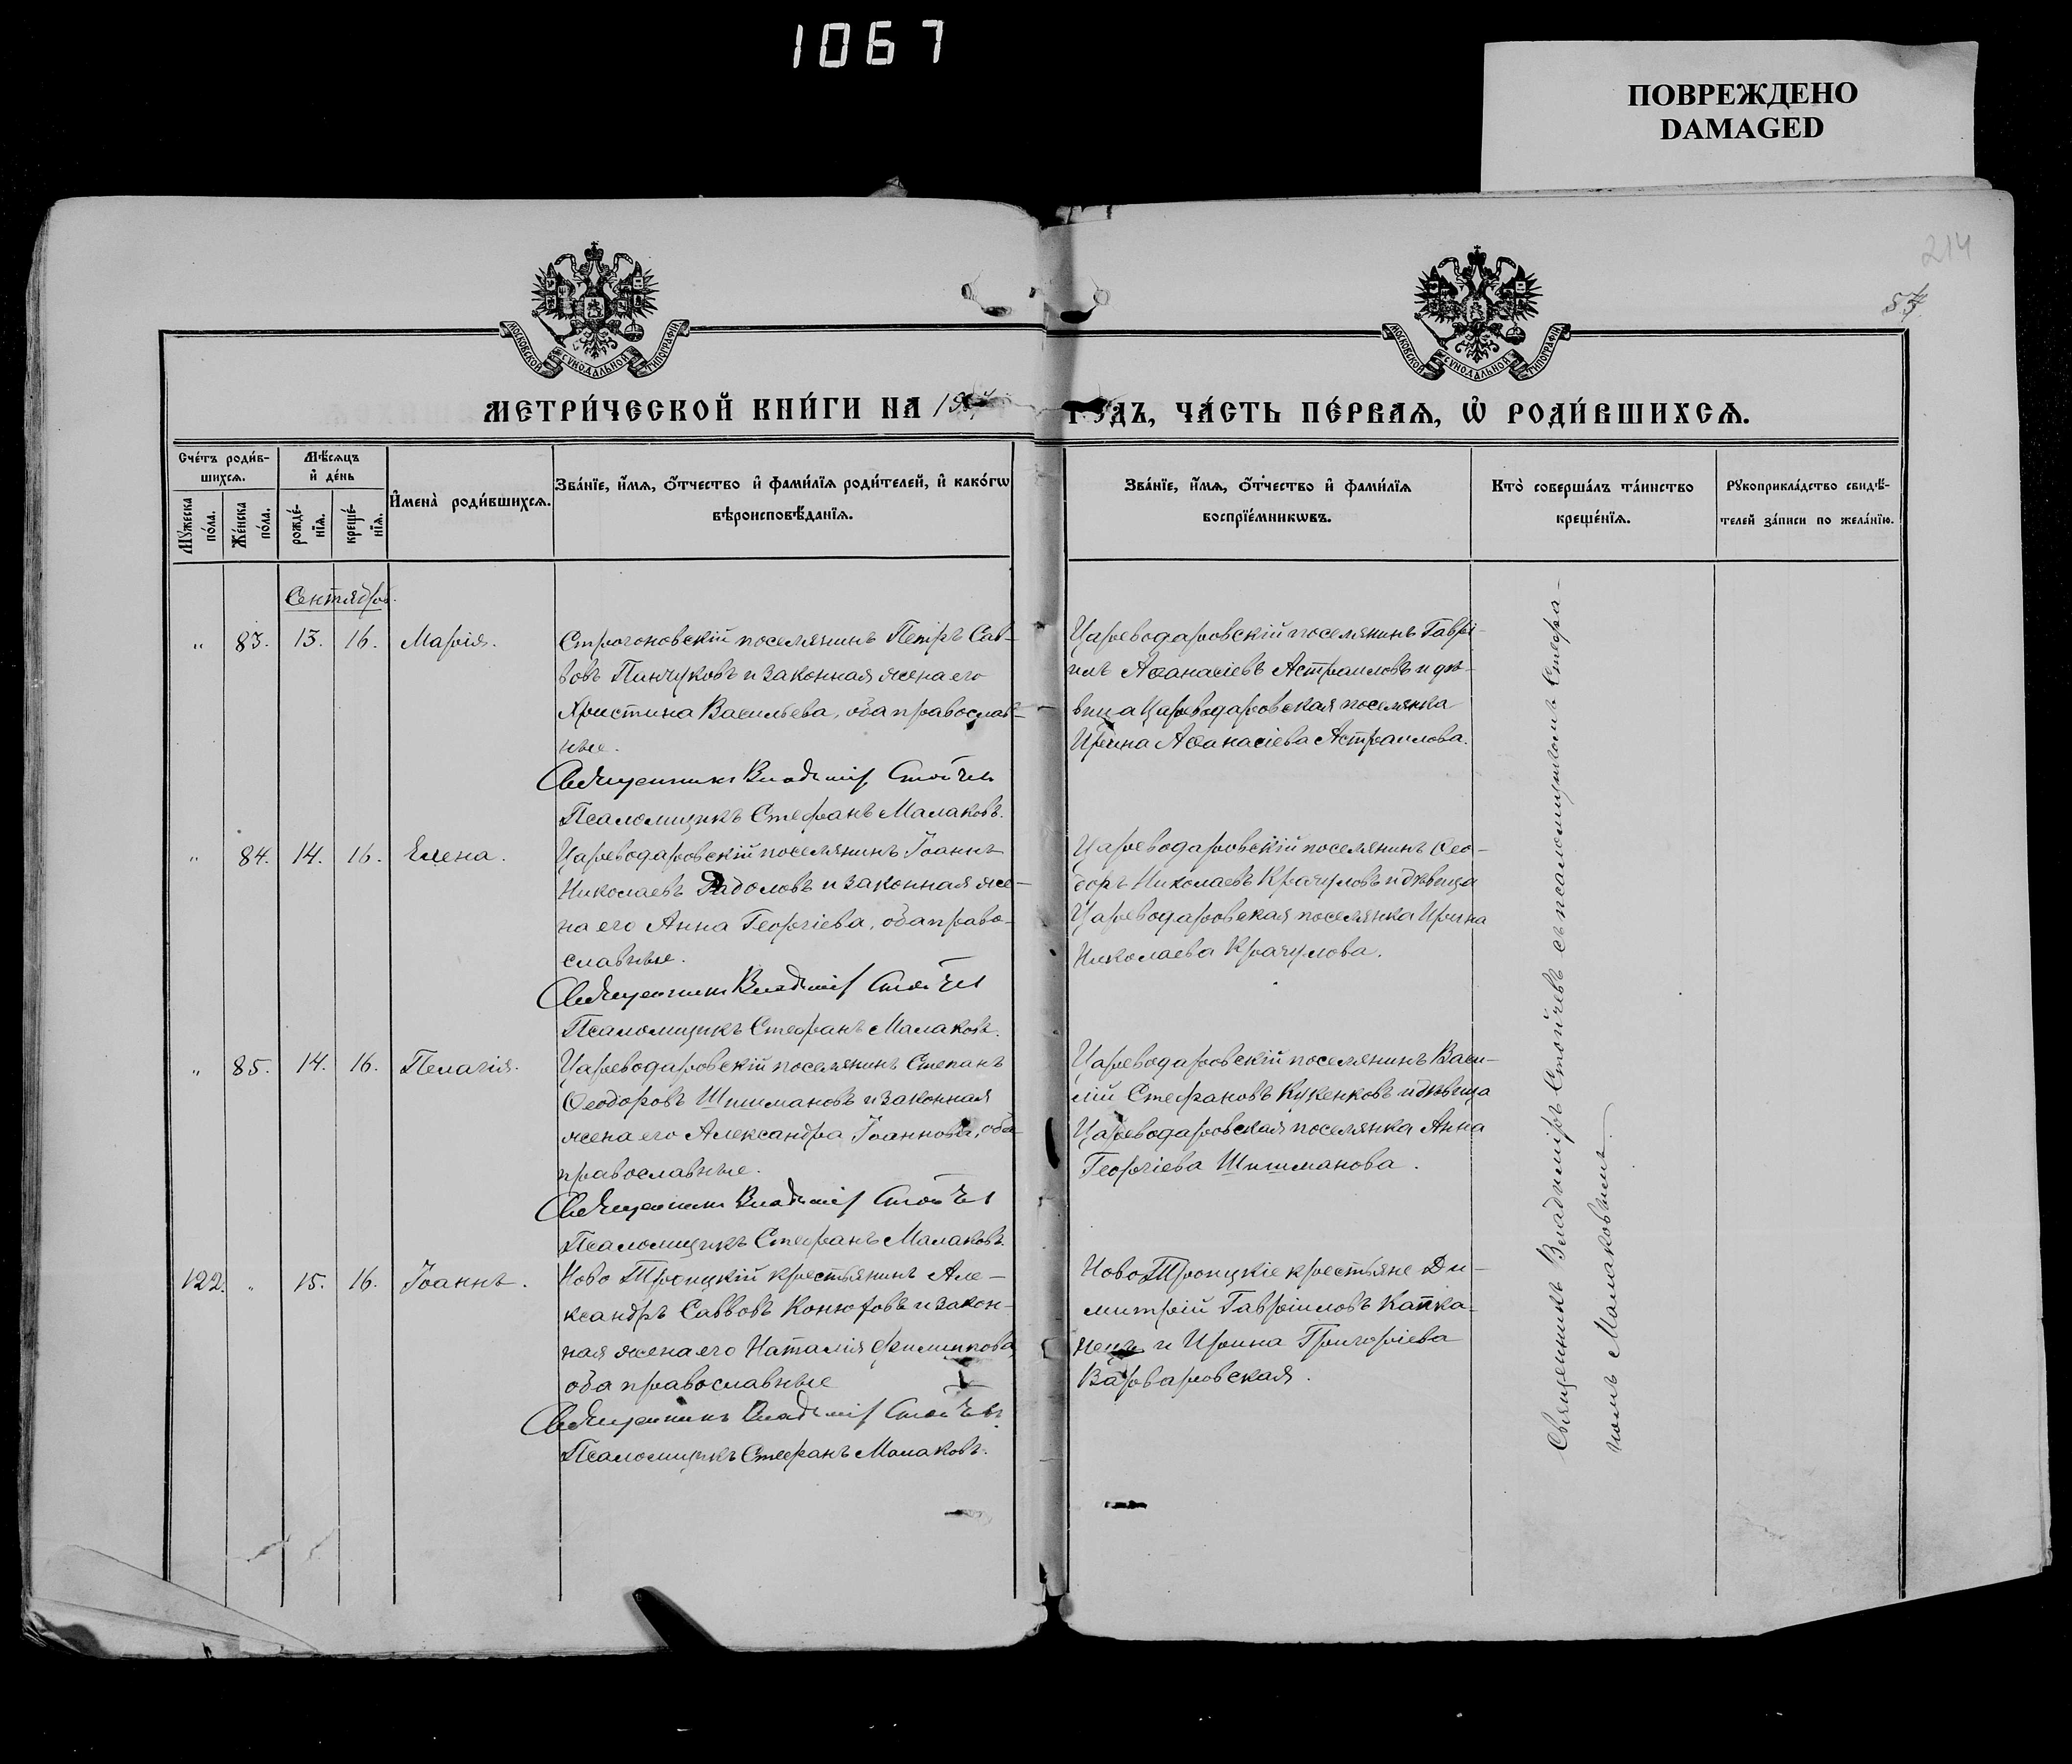 1067
ПОВРЕЖДЕНО
DAMAGED
214
МОСКОВСКОЙ СѴНОДАЛЬНОЙ ТИПОГРАФІИ
МОСКОВСКОЙ СѴНОДАЛЬНОЙ ТИПОГРАФІИ
МЕТРИ́ЧЕСКОЙ КНИ́ГИ НА 19
ГОДЪ, ЧА́СТЬ ПЕ́РВАѦ, Ѡ҆ РОДИ́ВШИХСѦ.
Сче́тъ роди́в-
шихсѧ.
Мѣ́сѧцъ
и҆ де́нь
Мꙋ́жеска
по́ла.
Же́нска
по́ла.
рожде́-
нїѧ.
креще́-
нїѧ.
И҆мена̀ роди́вшихсѧ.
Зва́нїе, и҆́мѧ, ѻ҆́тчество и҆ фами́лїѧ роди́телей, и҆ како́гѡ
вѣроисповѣ́данїѧ.
Зва́нїе, и҆́мѧ, ѻ҆́тчество и҆ фами́лїѧ
воспрїе́мникѡвъ.
Кто̀ соверша́лъ та́инство
креще́нїѧ.
Рꙋкоприкла́дство свидѣ́-
телей за́писи по жела́нїю.
Сентябрь.
" 83. 13. 16. Марія.
Строгоновскій поселянинъ Петръ Сав-
вовъ Панчуковъ и законная жена его
Христина Васильева, оба православ-
ные.
Священникъ Владиміръ Стойчевъ
Псаломщикъ Стефанъ Малаковъ.
Цареводаровскій поселянинъ Гаврі-
илъ Аѳанасіевъ Астраиловъ и дѣ-
вица Цареводаровская поселянка
Ирина Аѳанасіева Астраилова.
" 84. 14. 16. Елена.
Цареводаровскій поселянинъ Іоаннъ
Николаевъ Радоловъ и законная же-
на его Анна Георгіева, оба право-
славные.
Священникъ Владиміръ Стойчевъ
Псаломщикъ Стефанъ Малаковъ.
Цареводаровскій поселянинъ Ѳео-
доръ Николаевъ Крачуловъ и дѣвица
Цареводаровская поселянка Ирина
Николаева Крачулова.
" 85. 14. 16. Пелагія.
Цареводаровскій поселянинъ Степанъ
Ѳеодоровъ Шишмановъ и законная
жена его Александра Іоаннова, оба
православные.
Священникъ Владиміръ Стойчевъ
Псаломщикъ Стефанъ Малаковъ.
Цареводаровскій поселянинъ Васи-
лій Стефановъ Кукенковъ и дѣвица
Цареводаровская поселянка Анна
Георгіева Шишманова.
122. " 15. 16. Іоаннъ.
Ново Троицкій крестьянинъ Але-
ксандръ Саввовъ Конюховъ и закон-
ная жена его Наталія Филиппова,
оба православные
Священникъ Владиміръ Стойчевъ
Псаломщикъ Стефанъ Малаковъ.
Ново Троицкіе крестьяне Ди-
митрій Гавріиловъ Капка-
нецъ и Ирина Григоріева
Варваровская.
Священникъ Владиміръ Стойчевъ съ псаломщикомъ Стефа-
номъ Малаковымъ.